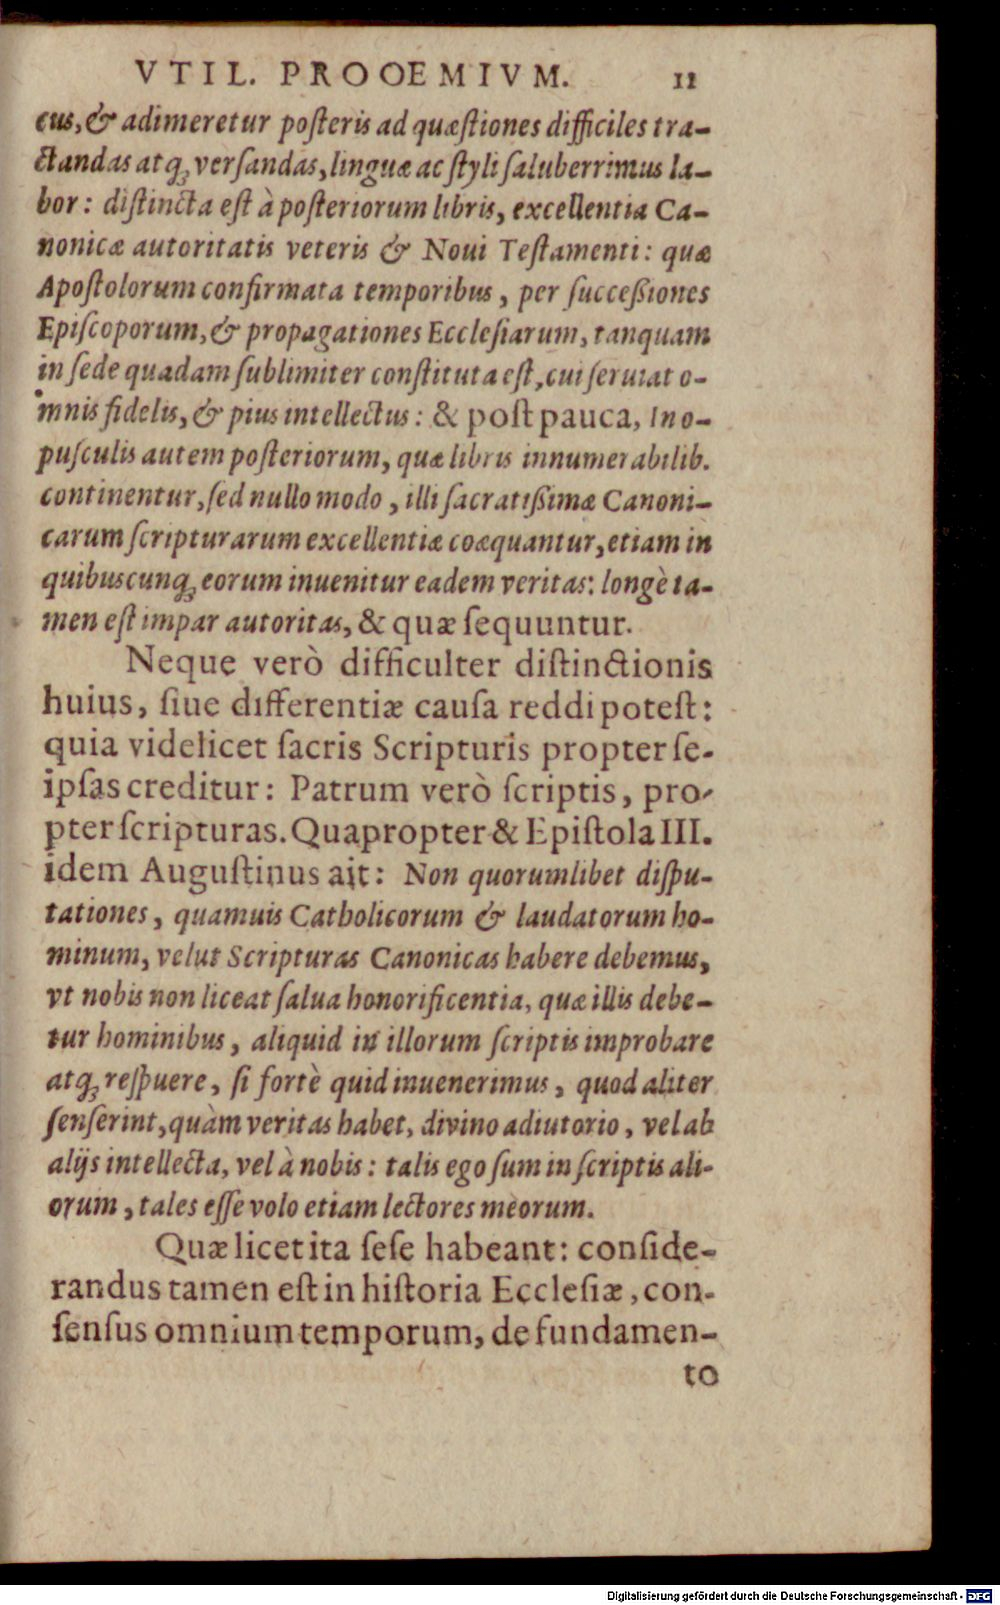 VTIL. PROOEMIVM. 11
cus, & adimeretur poſteris ad quæſtiones difficiles tra-
ctandas atq; verſandas, linguæ ac ſtyli ſaluberrimus la-
bor: diſtincta eſt à poſteriorum libris, excellentia Ca-
nonicæ autoritatis veteris & Noui Teſtamenti: quæ
Apoſtolorum confirmata temporibus, per ſucceßiones
Epiſcoporum, & propagationes Eccleſiarum, tanquam
in ſede quadam ſublimiter conſtituta eſt, cui ſeruiat o-
mnis fidelis, & pius intellectus: & poſt pauca, In o-
puſculis autem poſteriorum, quæ libris innumerabilib.
continentur, ſed nullo modo, illi ſacratißimæ Canoni-
carum ſcripturarum excellentiæ coæquantur, etiam in
quibuscunq; eorum inuenitur eadem veritas: longè ta-
men eſt impar autoritas, & quæ ſequuntur.
Neque verò difficulter diſtinctionis
huius, ſiue differentiæ cauſa reddi poteſt:
quia videlicet ſacris Scripturis propter ſe-
ipſas creditur: Patrum verò ſcriptis, pro-
pter ſcripturas. Quapropter & Epiſtola III.
idem Auguſtinus ait: Non quorumlibet diſpu-
tationes, quamuis Catholicorum & laudatorum ho-
minum, velut Scripturas Canonicas habere debemus,
vt nobis non liceat ſalua honorificentia, quæ illis debe-
tur hominibus, aliquid in illorum ſcriptis improbare
atq; reſpuere, ſi fortè quid inuenerimus, quod aliter
ſenſerint, quàm veritas habet, divino adiutorio, vel ab
alijs intellecta, vel à nobis: talis ego ſum in ſcriptis ali-
orum, tales eſſe volo etiam lectores meorum.
Quæ licet ita ſeſe habeant: conſide-
randus tamen eſt in hiſtoria Eccleſiæ, con-
ſenſus omnium temporum, de fundamen-
to
Digitalisierung gefördert durch die Deutsche Forschungsgemeinschaft - DFG